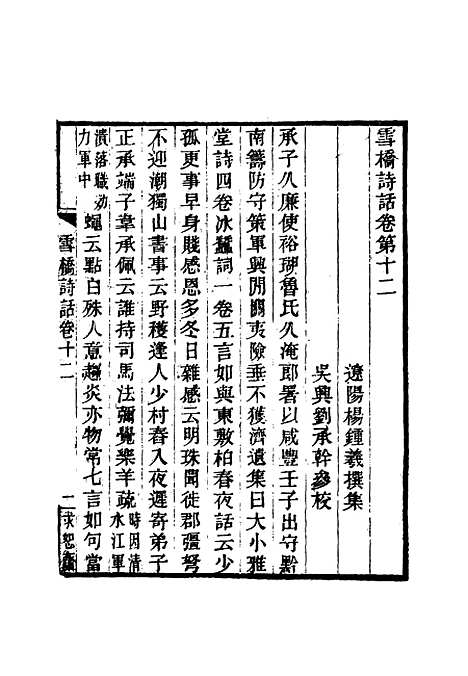 雪橋詩話卷第十二
遼陽楊鍾羲撰集
吳興劉承幹參校
承子久廉使裕瑚魯氏久淹郎署以咸豐壬子出守黔
南籌防守策軍興閒關夷險垂不獲濟遺集曰大小雅
堂詩四卷冰蠶詞一卷五言如與東敷柏春夜話云少
孤更事早身賤感恩多冬日雜感云明珠聞徙郡彊弩
不迎潮獨山書事云野穫逢人少村舂入夜遲寄弟子
正承端子韋承佩云誰持司馬法彌覺樂羊疏時因清水江軍
潰落職効力軍中蠅云點白殊人意趨炎亦物常七言如句當
雪橋詩話卷十二
一求恕齋